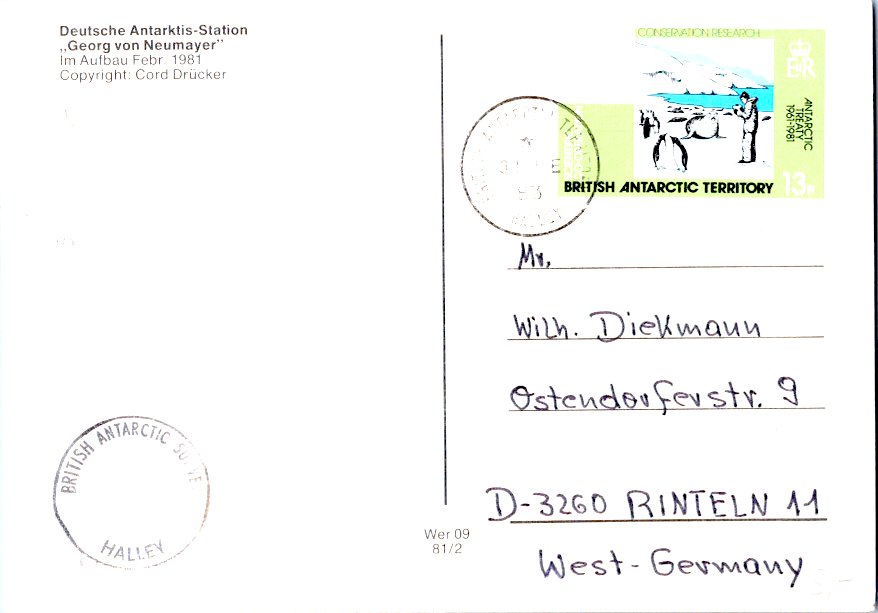 Deutsche Antarktis-Station
„Georg von Neumayer”
Im Aufbau Febr. 1981
Copyright: Cord Drücker
CONSERVATION RESEARCH
ER
ANTARCTIC
TREATY
1961-1981
13P
BRITISH ANTARCTIC TERRITORY
83
HALLEY
Mr.
Wilh. Diekmann
Ostendorferstr. 9
D-3260 RINTELN 11
West-Germany
BRITISH ANTARCTIC
HALLEY
Wer 09
81/2